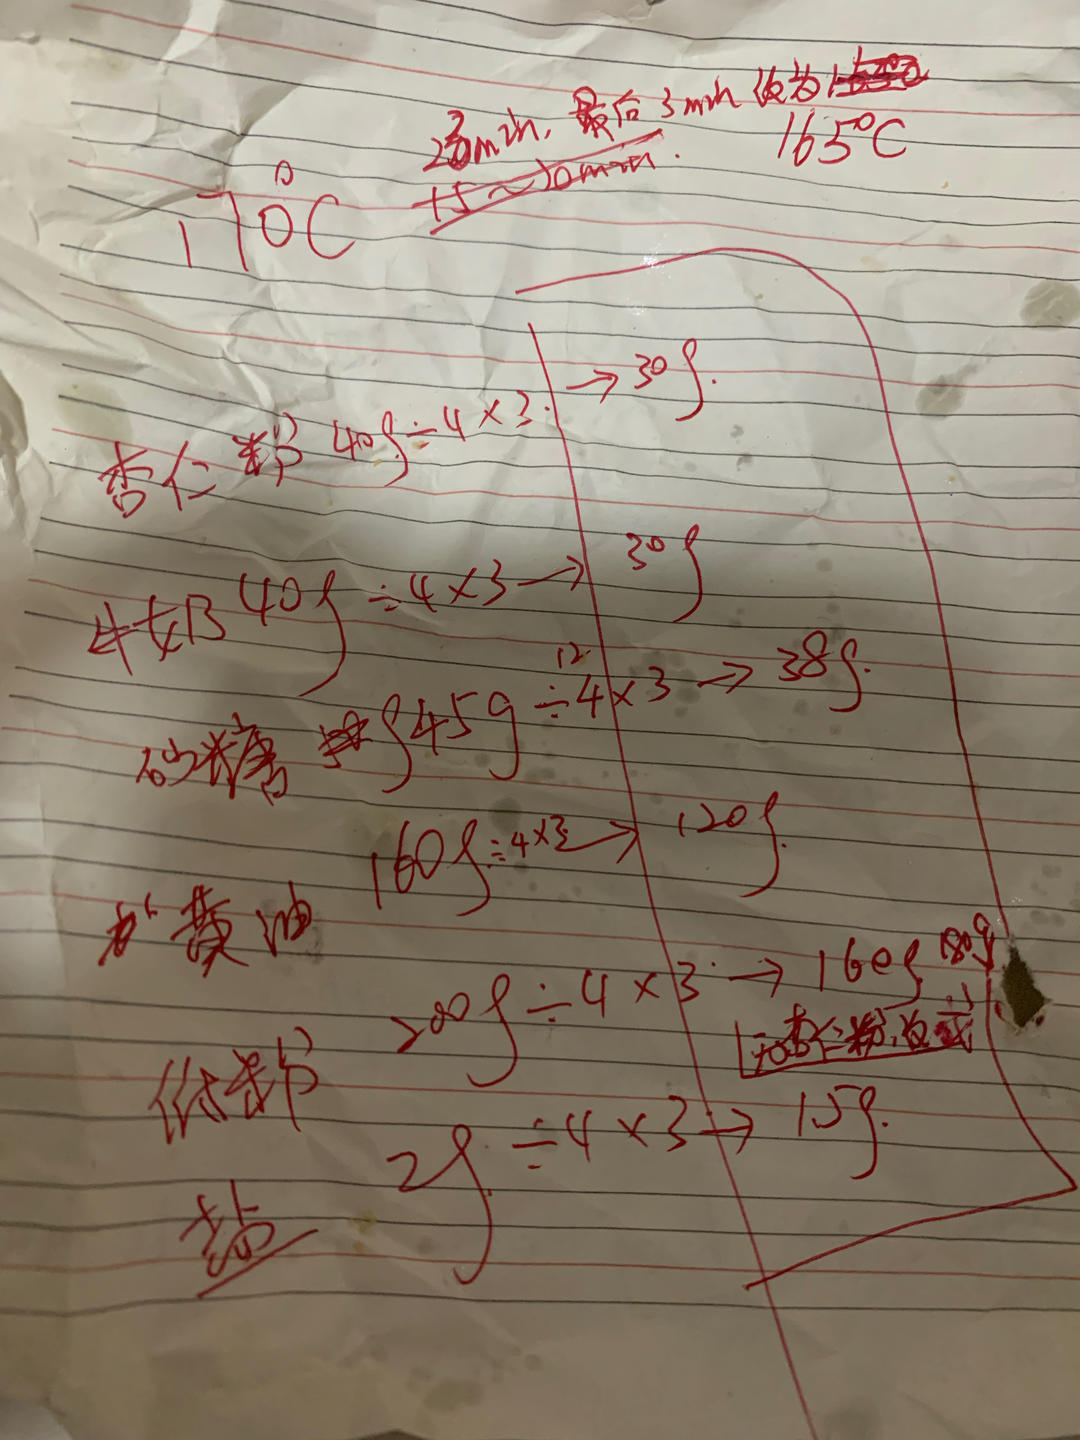 23min,最后3min 改为
165°C
170°C
杏仁粉 40g÷4×3. → 30g.
牛奶 40g ÷4×3 → 30g
砂糖 45g ÷4×3 → 38g.
12
黄油 160g÷4×3 → 120g.
低粉 200g÷4×3. → 160g 180g
无杏仁粉,改
盐 2g ÷4×3 → 15g.